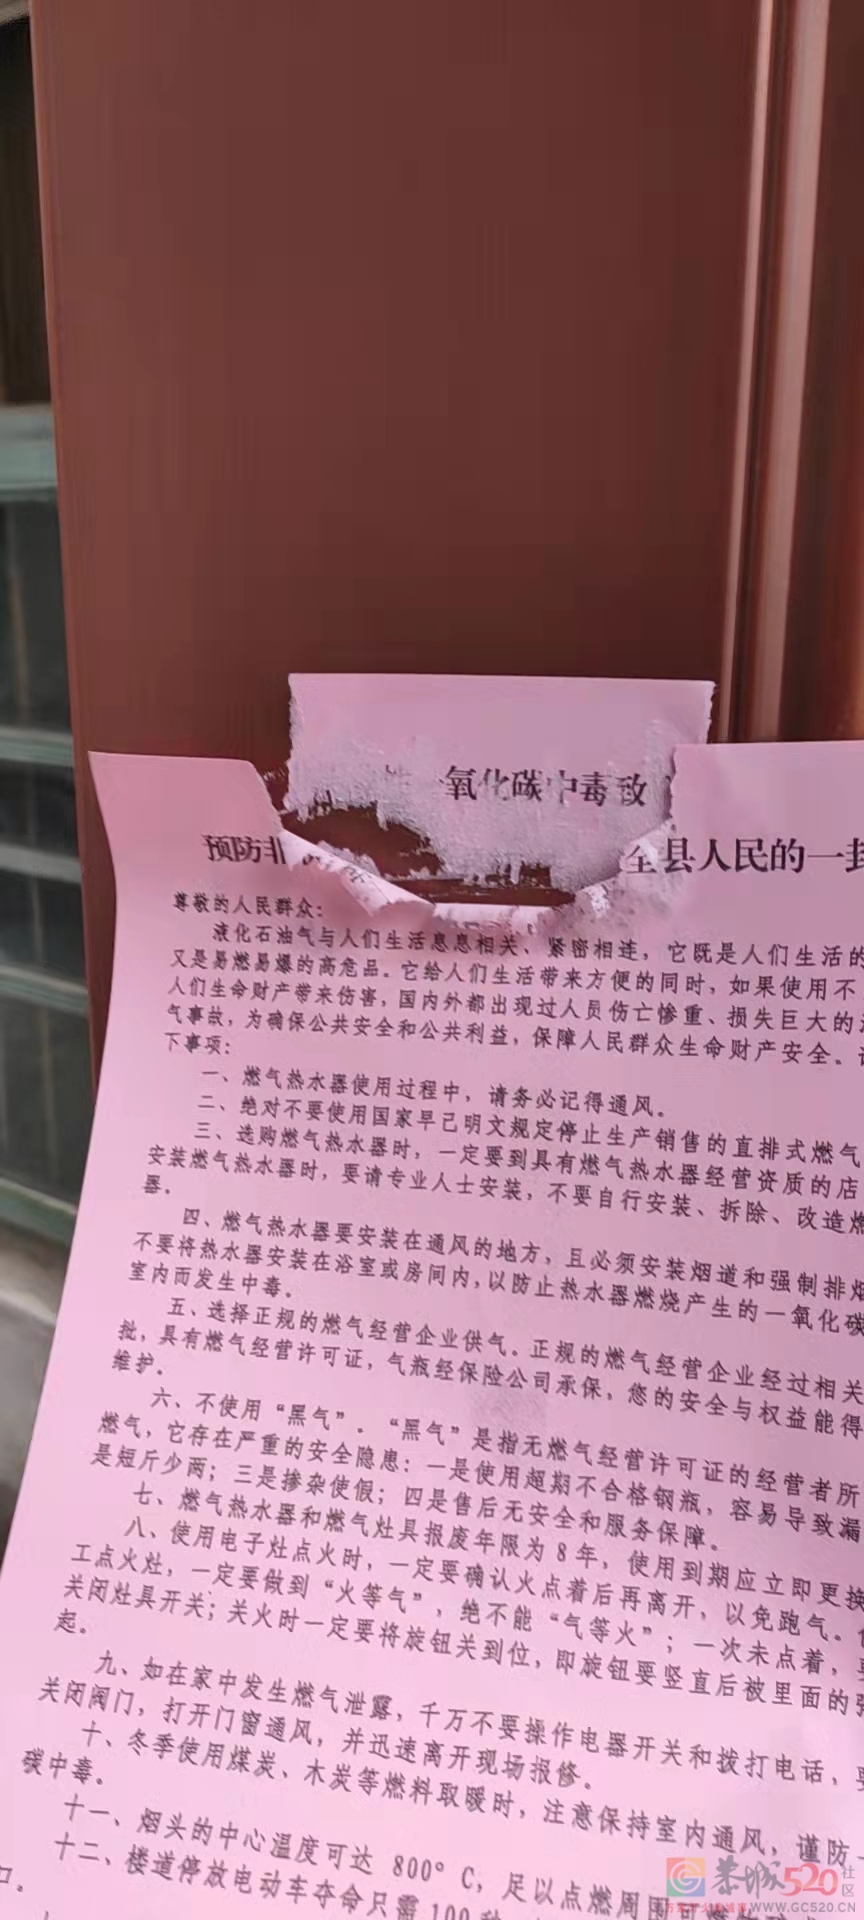 一氧化碳中毒致
预防非
全县人民的一封
尊敬的人民群众：
液化石油气与人们生活息息相关、紧密相连，它既是人们生活的
又是易燃易爆的高危品。它给人们生活带来方便的同时，如果使用不
人们生命财产带来伤害，国内外都出现过人员伤亡惨重、损失巨大的
气事故，为确保公共安全和公共利益，保障人民群众生命财产安全。
下事项：
一、燃气热水器使用过程中，请务必记得通风。
二、绝对不要使用国家早已明文规定停止生产销售的直排式燃气
三、选购燃气热水器时，一定要到具有燃气热水器经营资质的店
安装燃气热水器时，要请专业人士安装，不要自行安装、拆除、改造燃
器。
四、燃气热水器要安装在通风的地方，且必须安装烟道和强制排烟
不要将热水器安装在浴室或房间内，以防止热水器燃烧产生的一氧化碳
室内而发生中毒。
五、选择正规的燃气经营企业供气。正规的燃气经营企业经过相关
批，具有燃气经营许可证，气瓶经保险公司承保，您的安全与权益能得
维护。
六、不使用“黑气”．“黑气”是指无燃气经营许可证的经营者所
燃气，它存在严重的安全隐患：一是使用超期不合格钢瓶，容易导致漏
是短斤少两；三是掺杂使假；四是售后无安全和服务保障。
七、燃气热水器和燃气灶具报废年限为8年，使用到期应立即更换
八、使用电子灶点火时，一定要确认火点着后再离开，以免跑气。
工点火灶，一定要做到“火等气”，绝不能“气等火”；一次未点着，
关闭灶具开关；关火时一定要将旋钮关到位，即旋钮要竖直后被里面的弹
起。
九、如在家中发生燃气泄露，千万不要操作电器开关和拨打电话，
关闭阀门，打开门窗通风，并迅速离开现场报修。
十、冬季使用煤炭、木炭等燃料取暖时，注意保持室内通风，谨防一
碳中毒。
十一、烟头的中心温度可达 800°C，足以点燃周围可燃
十二、楼道停放电动车夺命只需100秒
口。
恭城520社区
WWW.GC520.CN